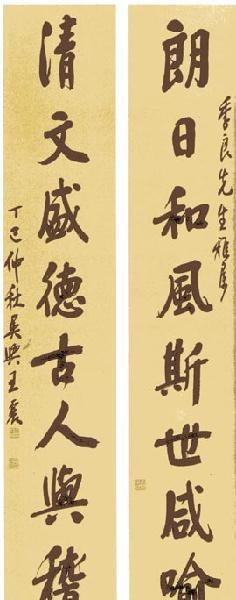 朗日和風斯世咸喻
季良先生雅屬
清文盛德古人與稽
丁巳仲秋吳興王震